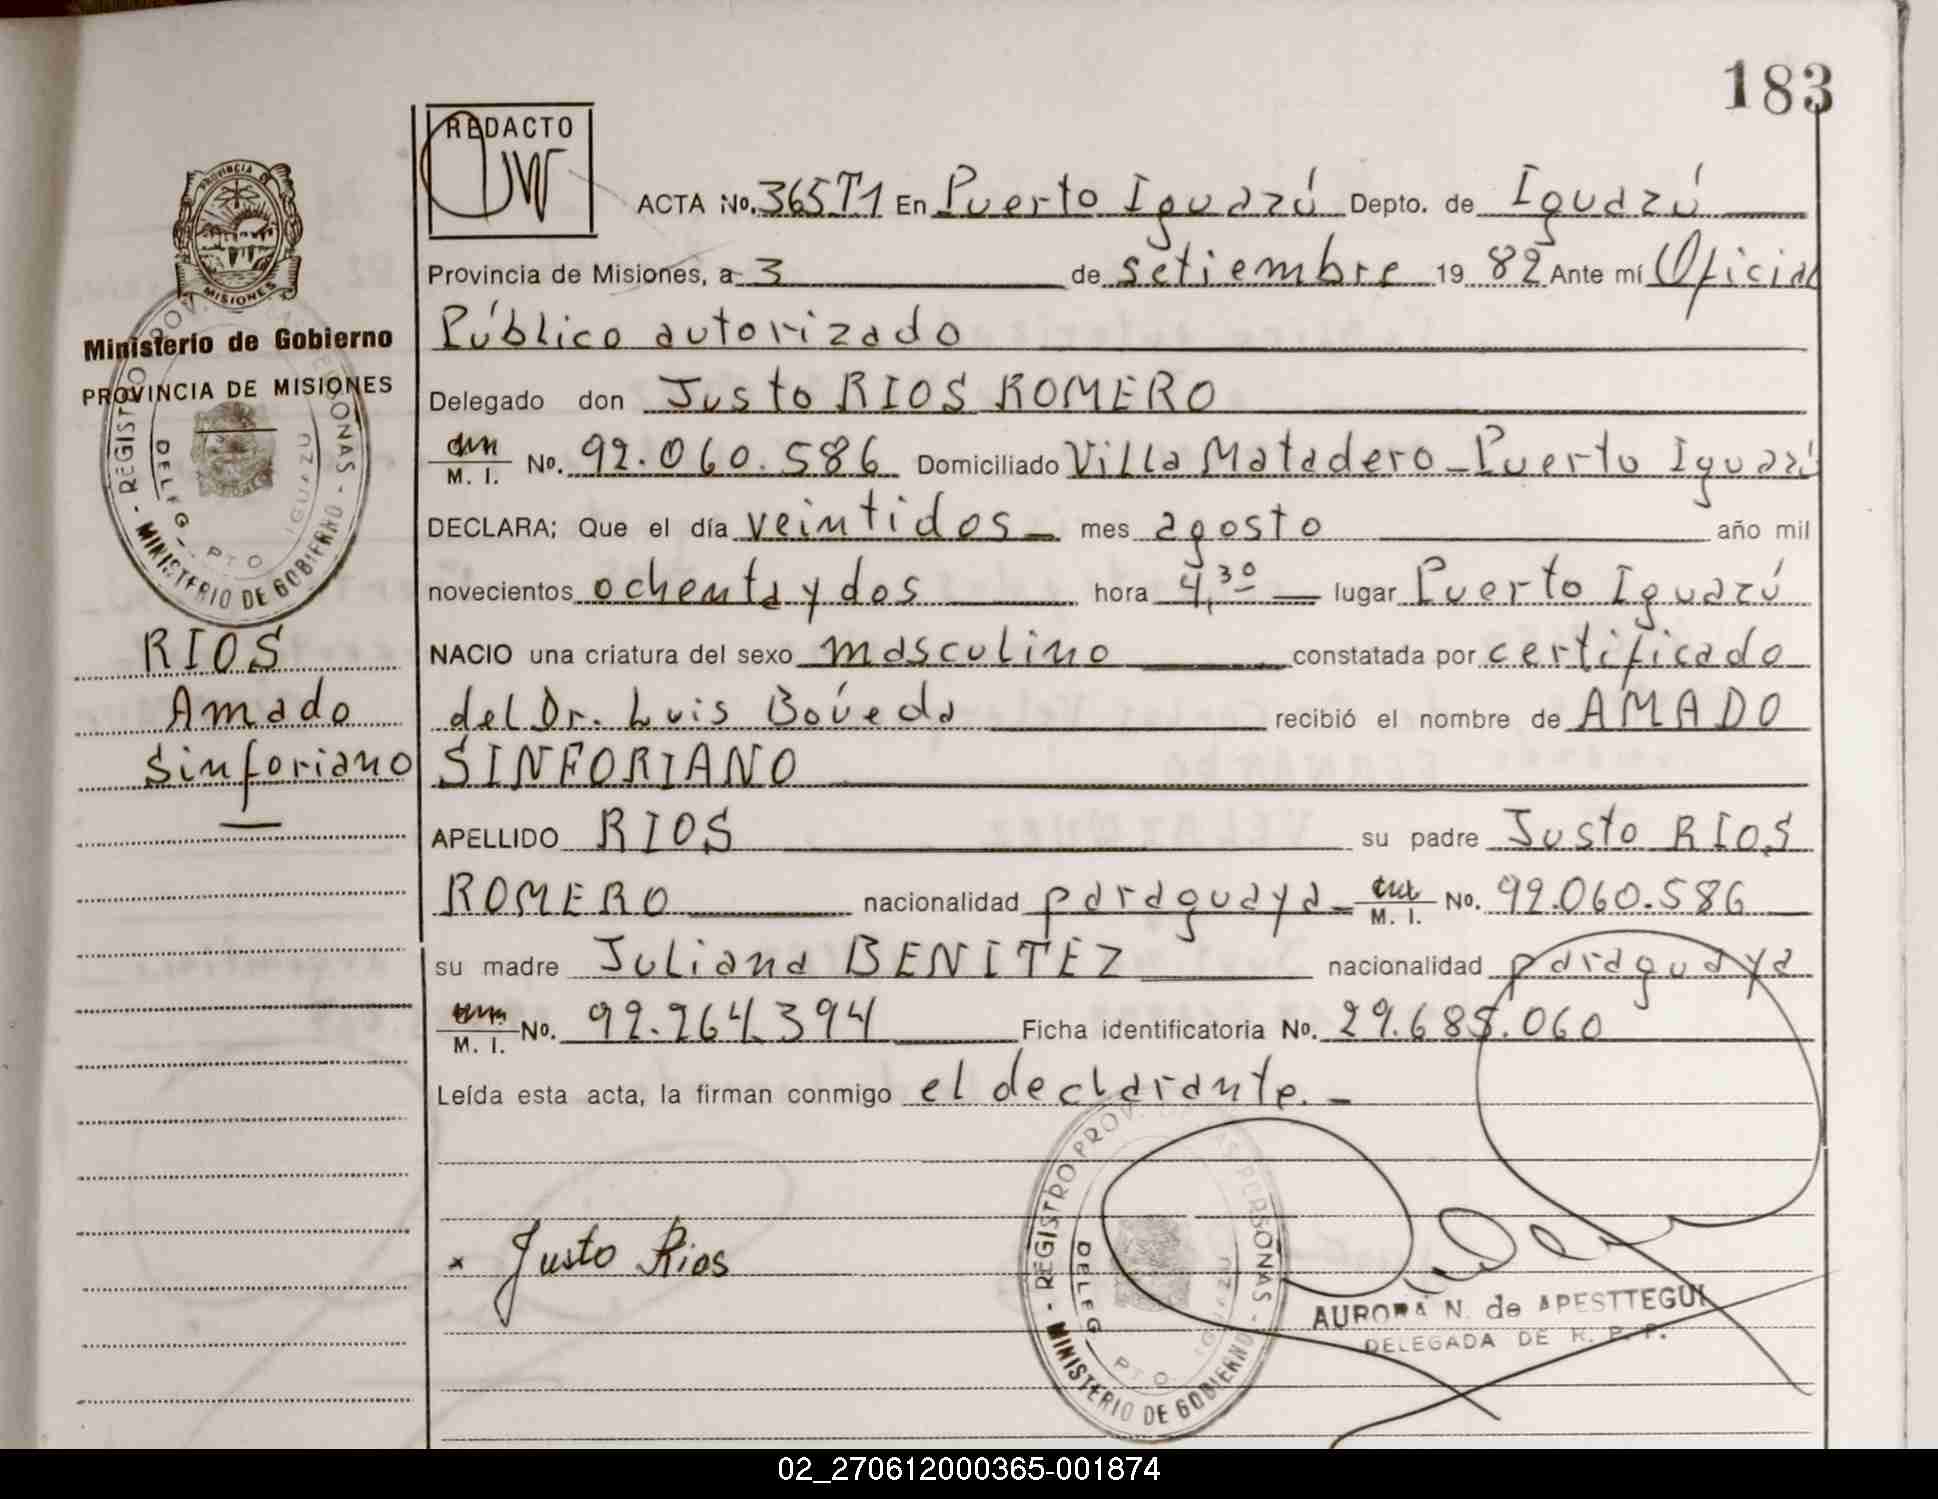 183
REDACTO
ACTA No. 365T1 En Puerto Iguazú Depto. de Iguazú
Provincia de Misiones, a 3 de setiembre 19 82 Ante mí Oficial
Público autorizado
Delegado don Justo RIOS ROMERO
M. I. No. 92.060.586 Domiciliado Villa Matadero - Puerto Iguazú
DECLARA; Que el día veintidos mes agosto año mil
novecientos ochenta y dos hora 4,30 lugar Puerto Iguazú
NACIO una criatura del sexo masculino constatada por certificado
del Dr. Luis Bóveda recibió el nombre de AMADO
SINFORIANO
APELLIDO RIOS su padre Justo RIOS
ROMERO nacionalidad paraguaya M. I. No. 92.060.586
su madre Juliana BENITEZ nacionalidad paraguaya
M. I. No. 92.264.394 Ficha identificatoria No. 29.685.060
Leída esta acta, la firman conmigo el declarante.-
PROVINCIA DE
MISIONES
Ministerio de Gobierno
PROVINCIA DE MISIONES
- REGISTRO PROV. PERSONAS -
DELEG. PTO IGUAZU
MINISTERIO DE GOBIERNO
RIOS
Amado
Sinforiano
x Justo Rios
- REGISTRO PROV. PERSONAS -
DELEG. PTO IGUAZU
MINISTERIO DE GOBIERNO
AURORA N. de APESTTEGUI
DELEGADA DE R. P. P.
02_270612000365-001874